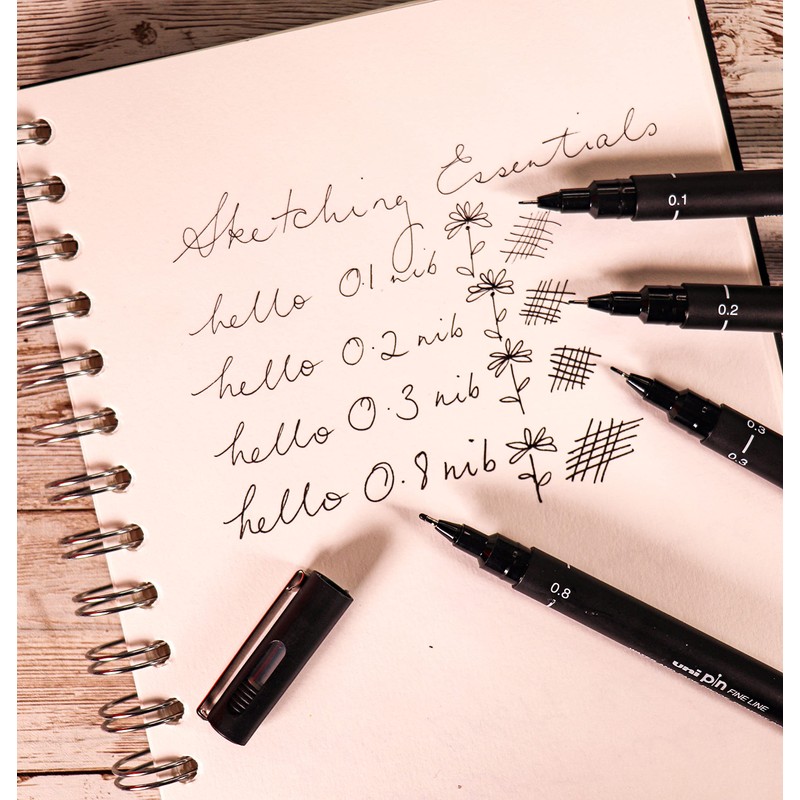 Sketching Essentials
hello 0.1 nib
hello 0.2 nib
hello 0.3 nib
hello 0.8 nib
0.1
0.2
0.3
0.3
0.8
uni pin FINE LINE